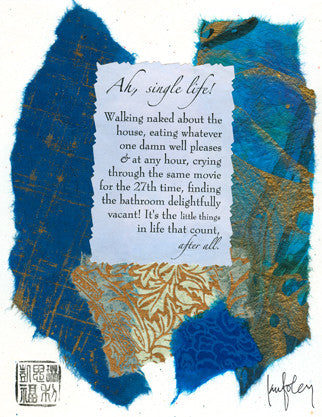 Ah, single life!
Walking naked about the
house, eating whatever
one damn well pleases
& at any hour, crying
through the same movie
for the 27th time, finding
the bathroom delightfully
vacant! It's the little things
in life that count,
after all.